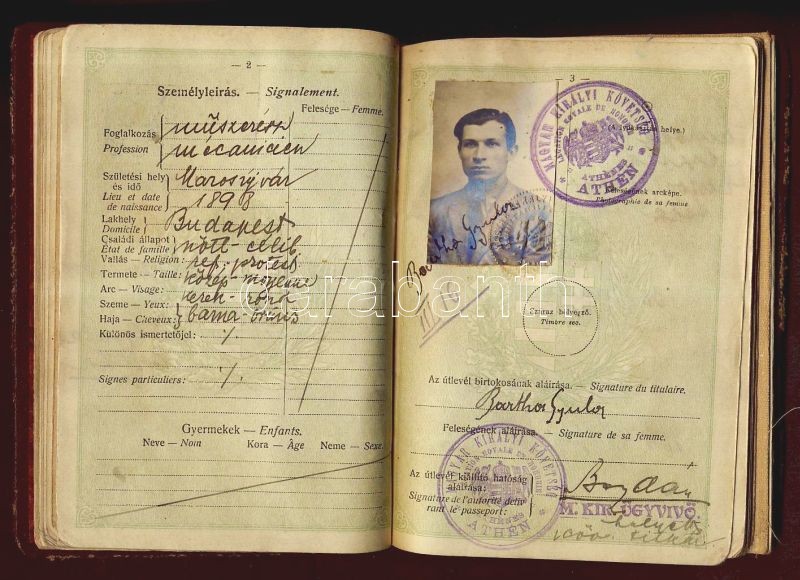 — 2 —
Személyleírás. — Signalement.
Felesége — Femme.
Foglalkozás
Profession
műszerész
mécanicien
Születési hely
és idő
Lieu et date
de naissance
Marosújvár
1898
Lakhely
Domicile
Budapest
Családi állapot
État de famille
célib
Vallás — Religion:
ref. protest
Termete — Taille:
közép-moyenne
Arc — Visage:
kerek-rond
Szeme — Yeux:
Haja — Cheveux:
barna-bruns
Különös ismertetőjel:
Signes particuliers:
Gyermekek — Enfants.
Neve — Nom Kora — Âge Neme — Sexe
— 3 —
MAGYAR KIRÁLYI KÖVETSÉG
LEGATION ROYALE DE HONGRIE
ATHÈNES
ATHÉN
Feleségének arcképe.
Photographie de sa femme
Bartha Gyula
Száraz bélyegző.
Timbre sec.
Az útlevél birtokosának aláírása. — Signature du titulaire.
Bartha Gyula
Feleségének aláírása. — Signature de sa femme.
MAGYAR KIRÁLYI KÖVETSÉG
LEGATION ROYALE DE HONGRIE
ATHÈNES
ATHÉN
Az útlevél kiállító hatóság
aláírása:
Signature de l'autorité déliv-
rant le passeport:
M. KIR. ÜGYVIVŐ
helyett
Darabanth